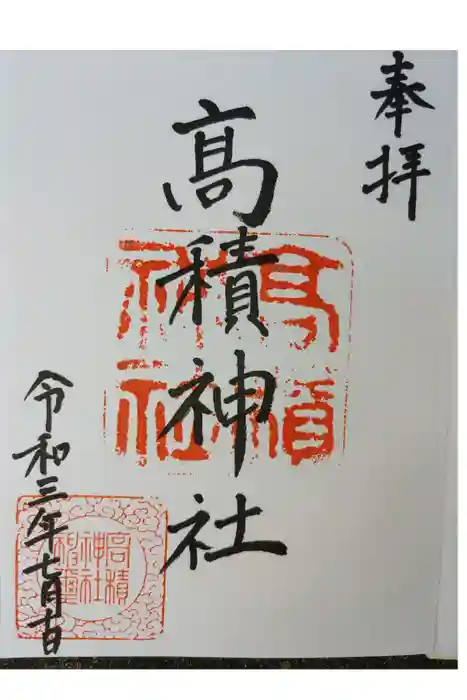 奉拝
髙積神社
令和三年七月十日
高積
神社
高積
神社